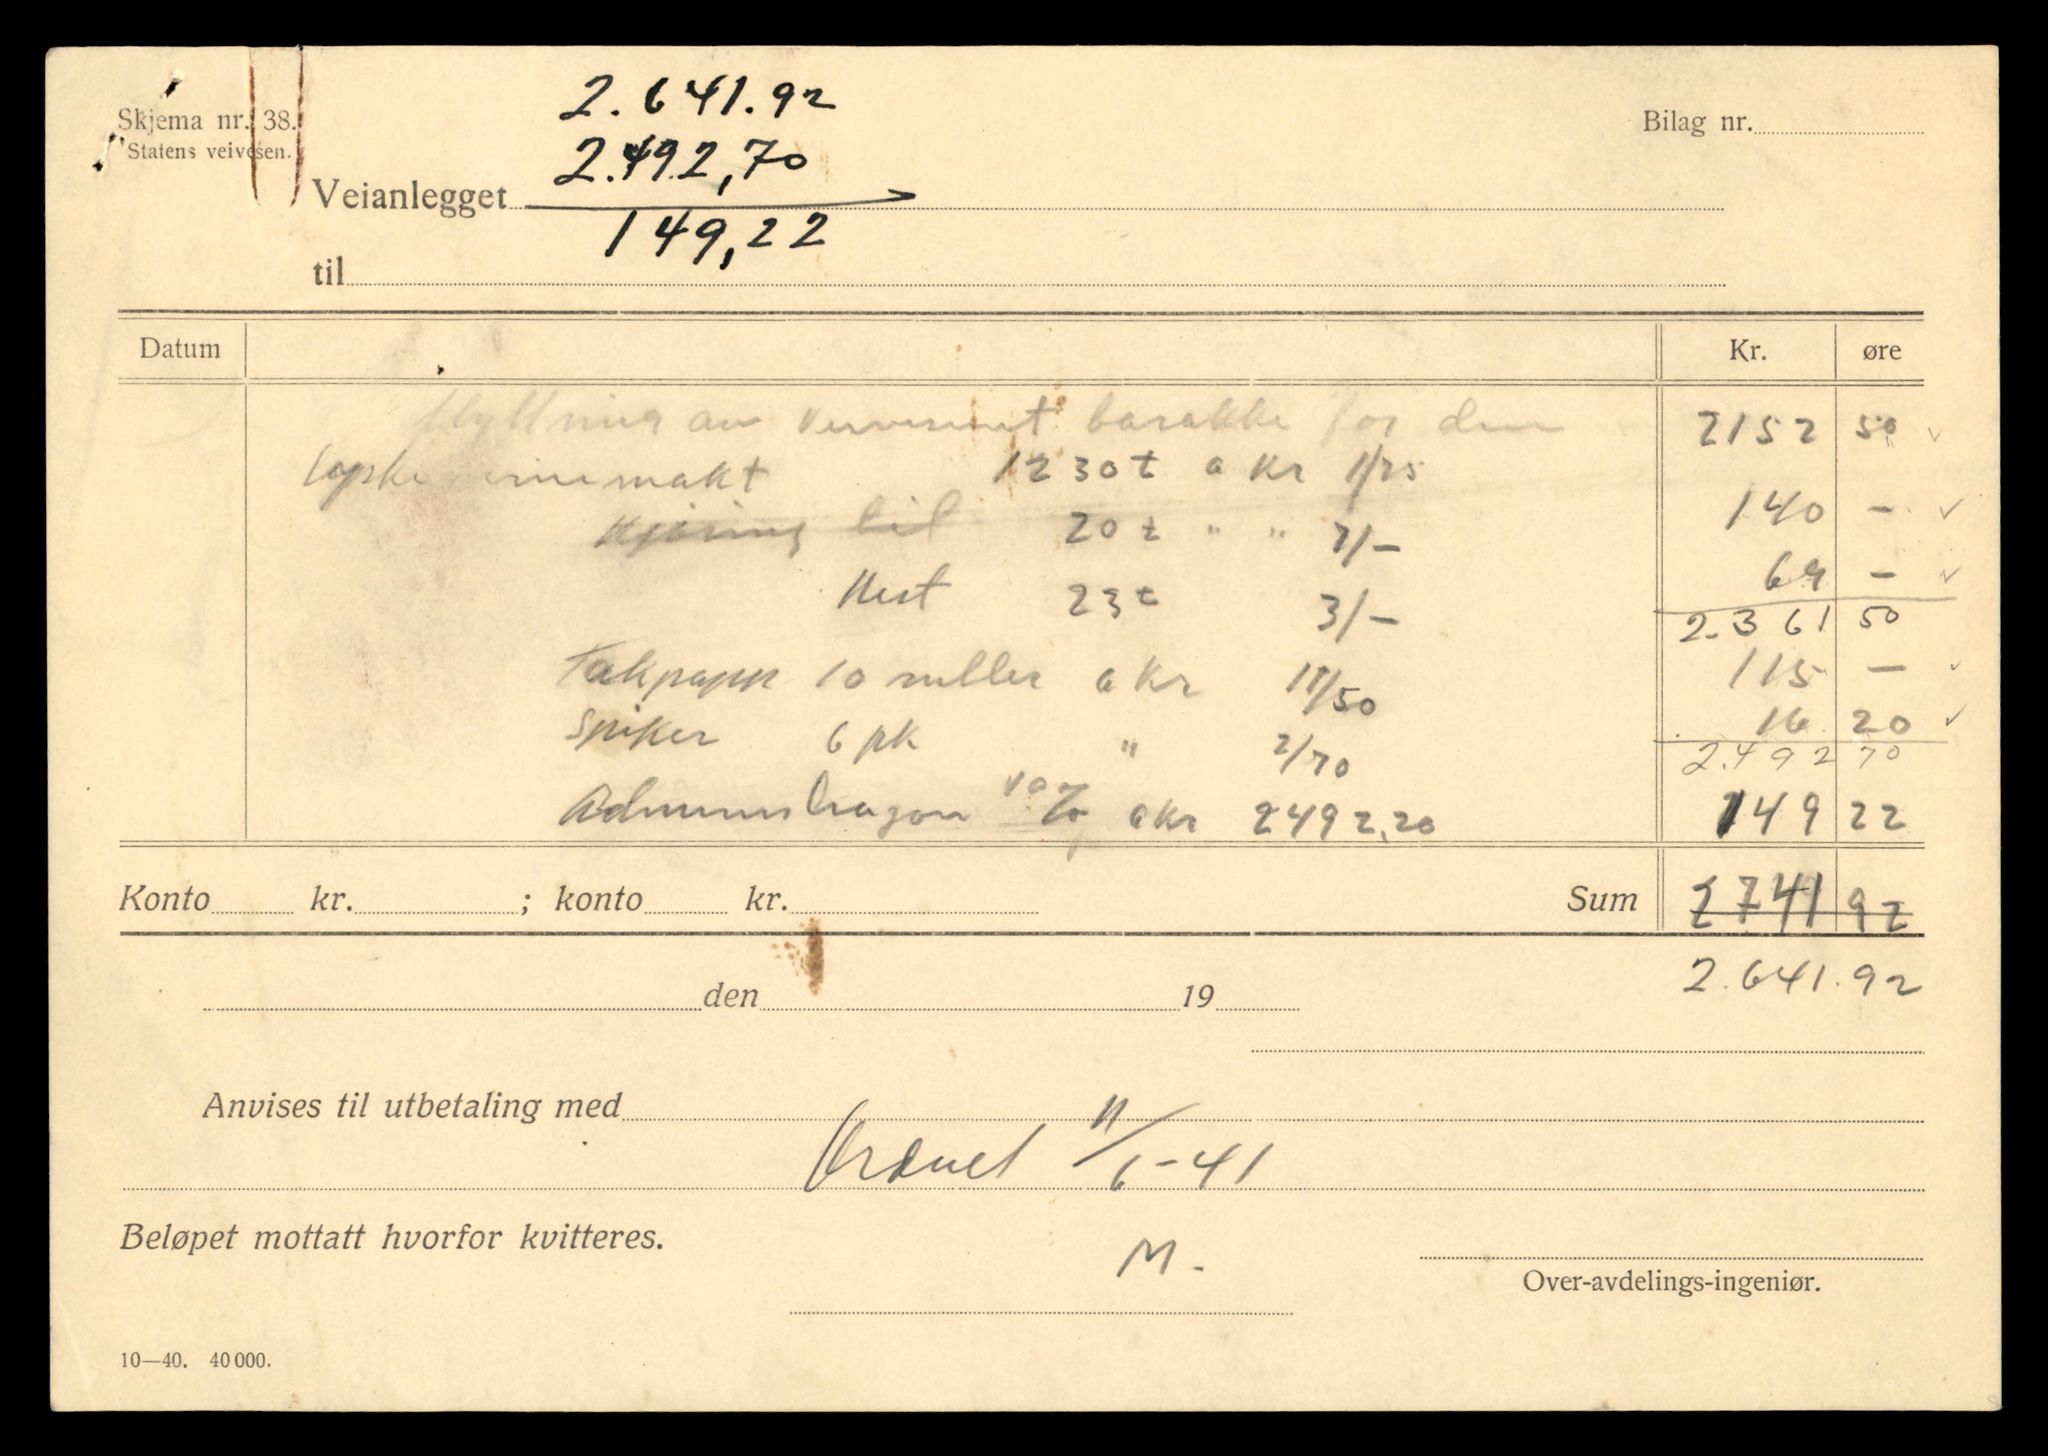 Skjema nr. 38.
Statens veivesen.
Bilag nr.
2.641.92
2.492,70
Veianlegget
149,22
til
Datum Kr. øre
Flyttning av veivesenet barakke for den 2152 50
tyske vernemakt 1230 t a kr 1/75
Kjøring bil 20 t " " 7/— 140 —
Hest 23 t 3/— 69 —
2.361 50
Takpapp 10 ruller a kr 11/50 115 —
Spiker 6 pk " 2/70 16 20
2.492 70
Administragon % a kr 2492,20 149 22
Konto kr. ; konto kr. Sum 2741 92
2.641.92
den 19
Anvises til utbetaling med
11/6-41
Beløpet mottatt hvorfor kvitteres.
M.
Over-avdelings-ingeniør.
10—40. 40 000.